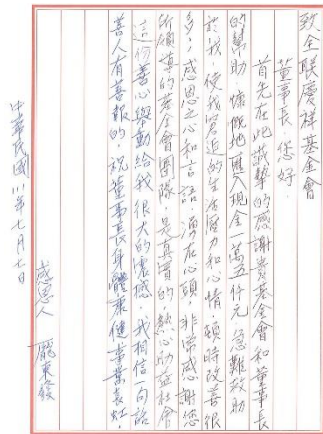 致全联慶祥基金會
董事長,您好.
首先在此誠摯的感謝貴基金會和董事長
的幫助,慷慨地匯入現金一萬五仟元,急難救助
於我,使我窘近的生活壓力和心情,頓時改善很
多,感恩之心和言語,湧在心頭,非常感謝您
所領導的基金會團隊,是真實的熱心助益社會
這份善心舉動給我很大的震撼.我相信一句話
善人有善報的.祝董事長身體康健事業長虹.
感恩人 龐東發
中華民國111年七月七日